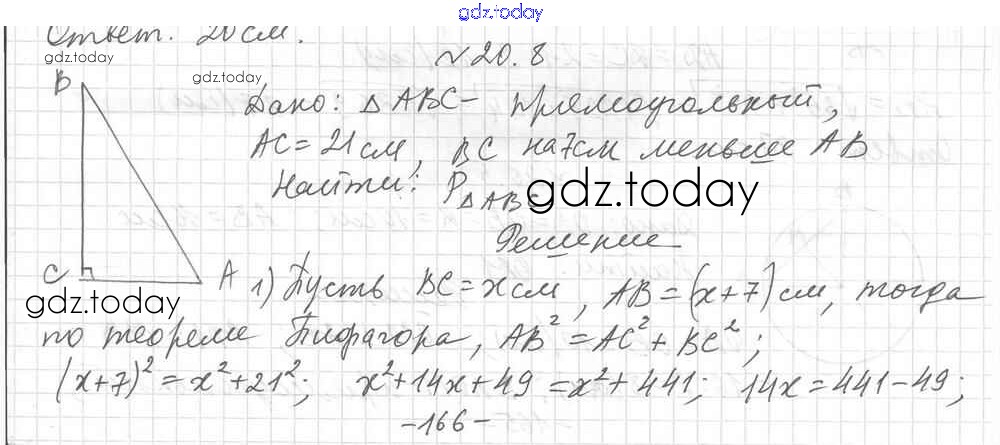 gdz.today
Ответ. 20 см.
gdz.today
gdz.today
№20.8
B
Дано: △ABC – прямоугольный,
AC = 21 см, BC на 7см меньше AB
Найти: P△ABC
gdz.today
Решение
C
A
1) Пусть BC = x см, AB = (x+7) см, тогда
gdz.today
по теореме Пифагора, AB² = AC² + BC²;
(x+7)² = x² + 21²; x² + 14x + 49 = x² + 441; 14x = 441 – 49;
–166–